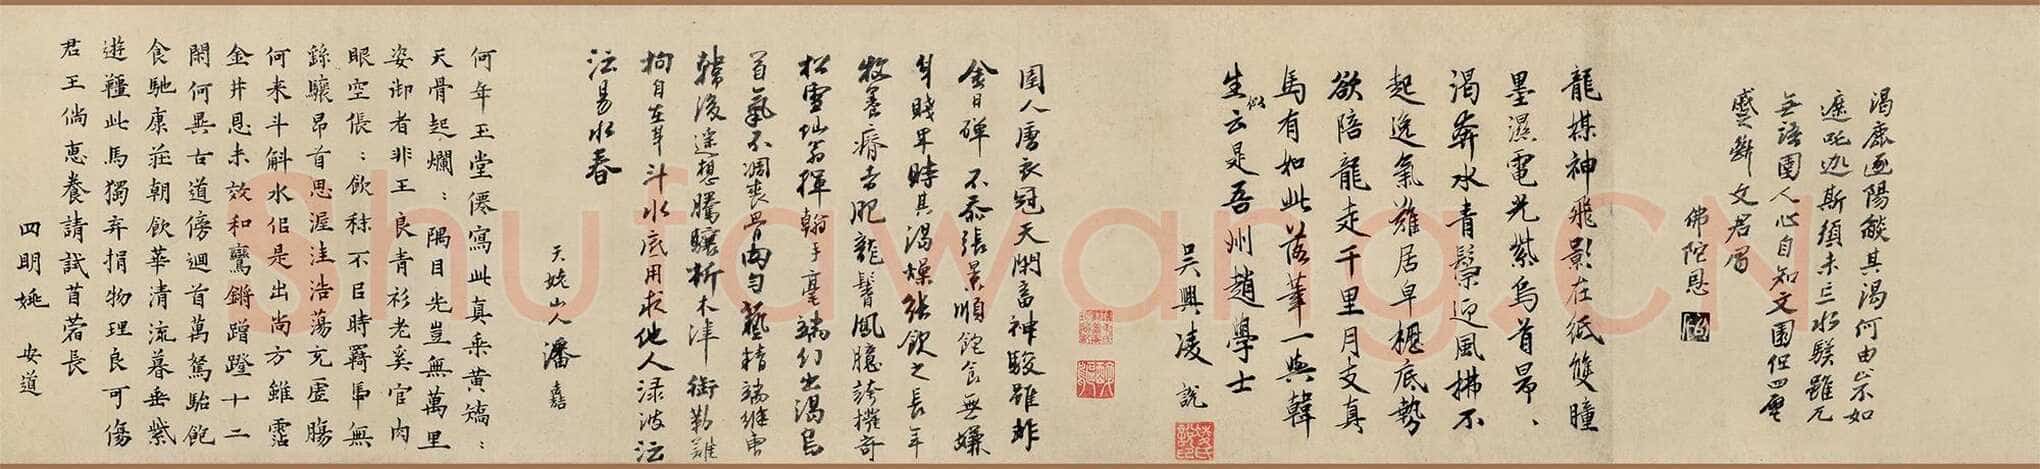 渴鹿逐陽燄其渴何由止不如
斯須未忘水騃雖兀
無語圉人心自知文園任四壁
蹙斷文君眉
佛陀恩
龍媒神飛影在紙雙瞳
墨濕電光紫烏首昂、
渴奔水青鬃迎風拂不
起逸氣難居皁櫪底勢
欲陪龍走千里月支真
馬有如此落筆一與韓
生似云是吾州趙學士
吳興凌說
圉人唐衣冠天閑畜神駿雖非
金日磾不忝張景順飽食無嫌
身賤早時其渴燥從飲之長年
牧養瘠者肥龍鬐鳳臆誇權奇
松雪仙翁揮翰手毫端幻出渴烏
首氣不凋喪骨肉勻藝精端繼東
韓後遙想騰驤析木津銜勒難
拘自在身斗水底用求他人淥波江
江易水春
天姥山人潘嘉
何年玉堂僊寫此真乘黃矯:
天骨起爛:隅目光豈無萬里
姿御者非王良青衫老奚官肉
眼空倀:飲秣不㠯時羈馽無
繇驤昂首思渥洼浩蕩充虛腸
何来斗斛水但是出尚方雖霑
金井恩未效和鸞鏘蹭蹬十二
閑何異古道傍迴首萬駑駘飽
食馳康莊朝飲華清流暮垂紫
遊韁此馬獨弃捐物理良可傷
君王倘惠養請試苜蓿長
四明姚安道
Shufawang.CN